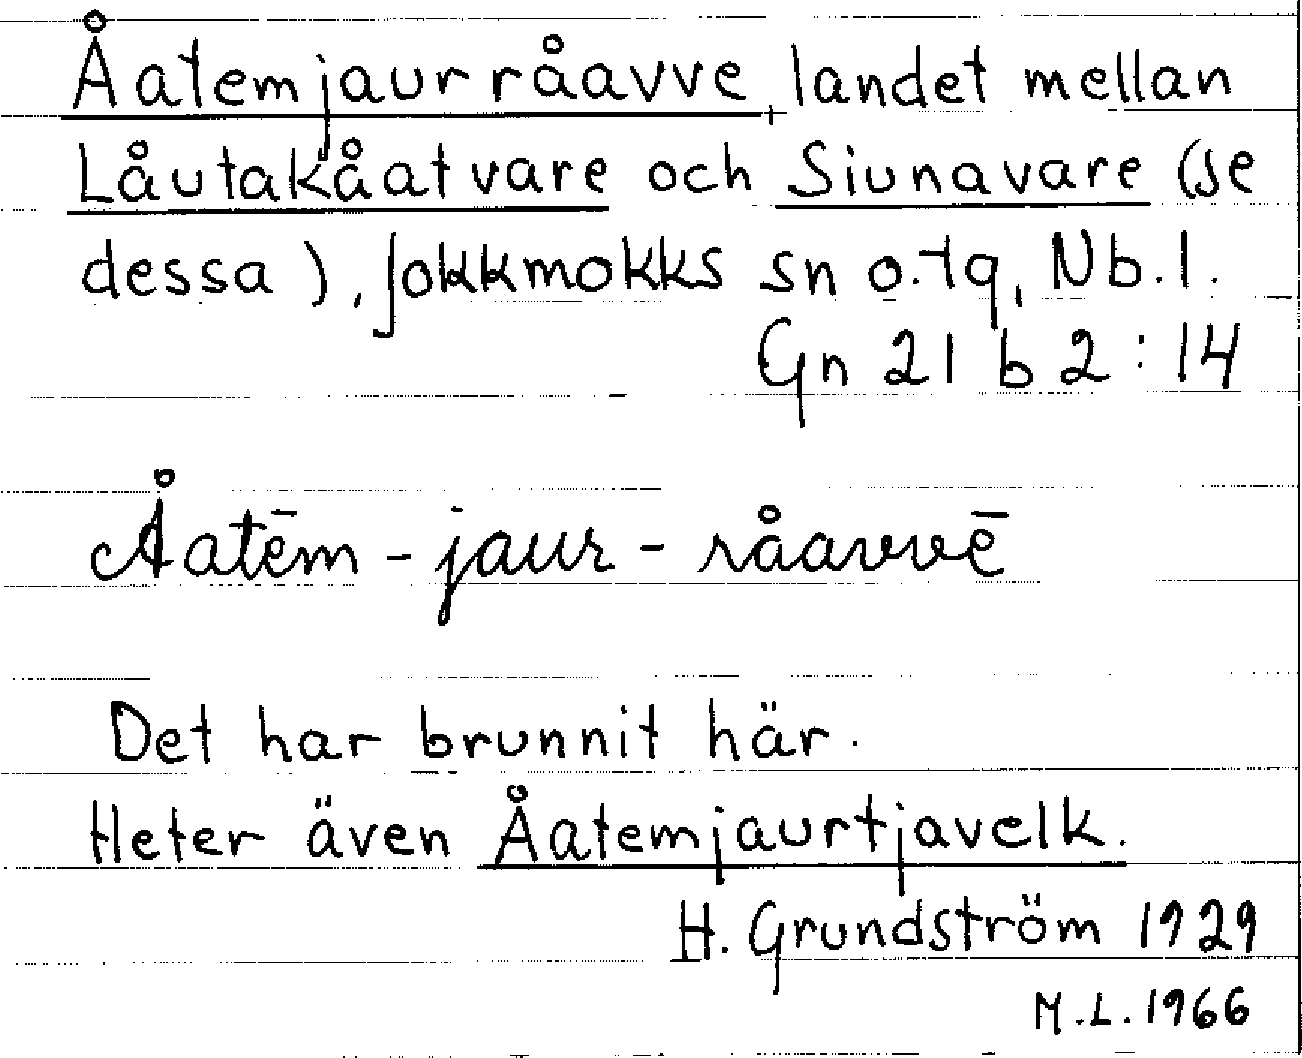 Åatemjaurråavve, landet mellan
Låutakåatvare och Siunavare (se
dessa), Jokkmokks sn o. tg, Nb. l.
Gn 21 b 2:14
Åatēm-jaur-råavvē
Det har brunnit här.
Heter även Åatemjaurtjavelk.
H. Grundström 1929
M.L. 1966